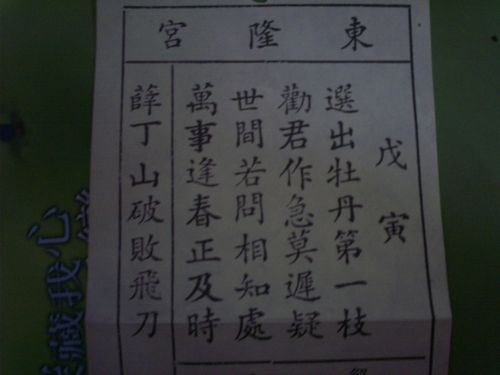 東隆宮
戊寅
選出牡丹第一枝
勸君作急莫遲疑
世間若問相知處
萬事逢春正及時
薛丁山破敗飛刀
藏我心